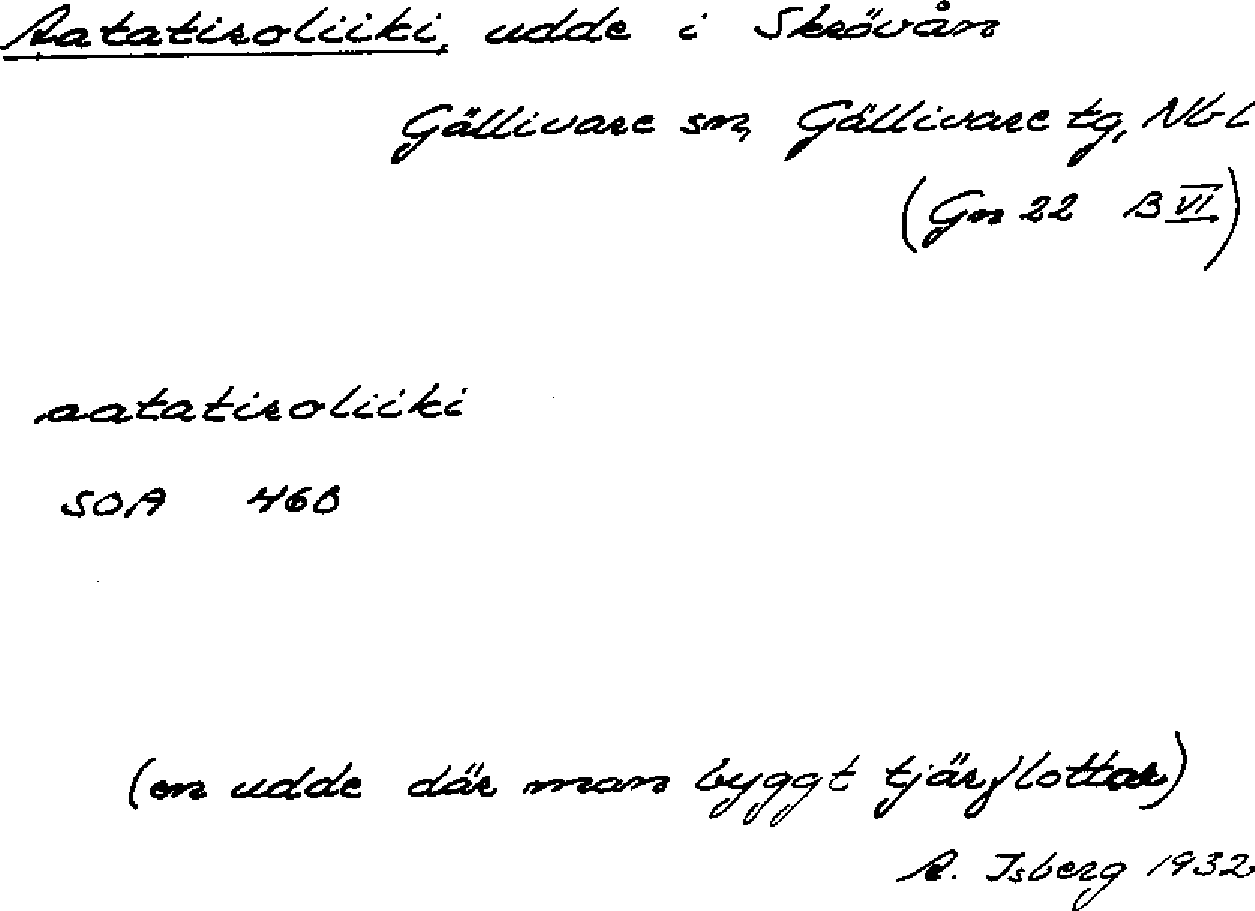 Aatatiroliiki, udde i Skrövån
Gällivare sn, Gällivare tg, Nbl
(Gn 22 B VI)
aatatiroliiki
SOA 46B
(en udde där man byggt tjärflottar)
A. Isberg 1932